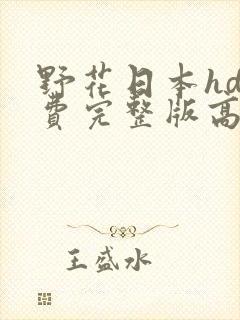 野花日本hd
費完整版高
王盛水